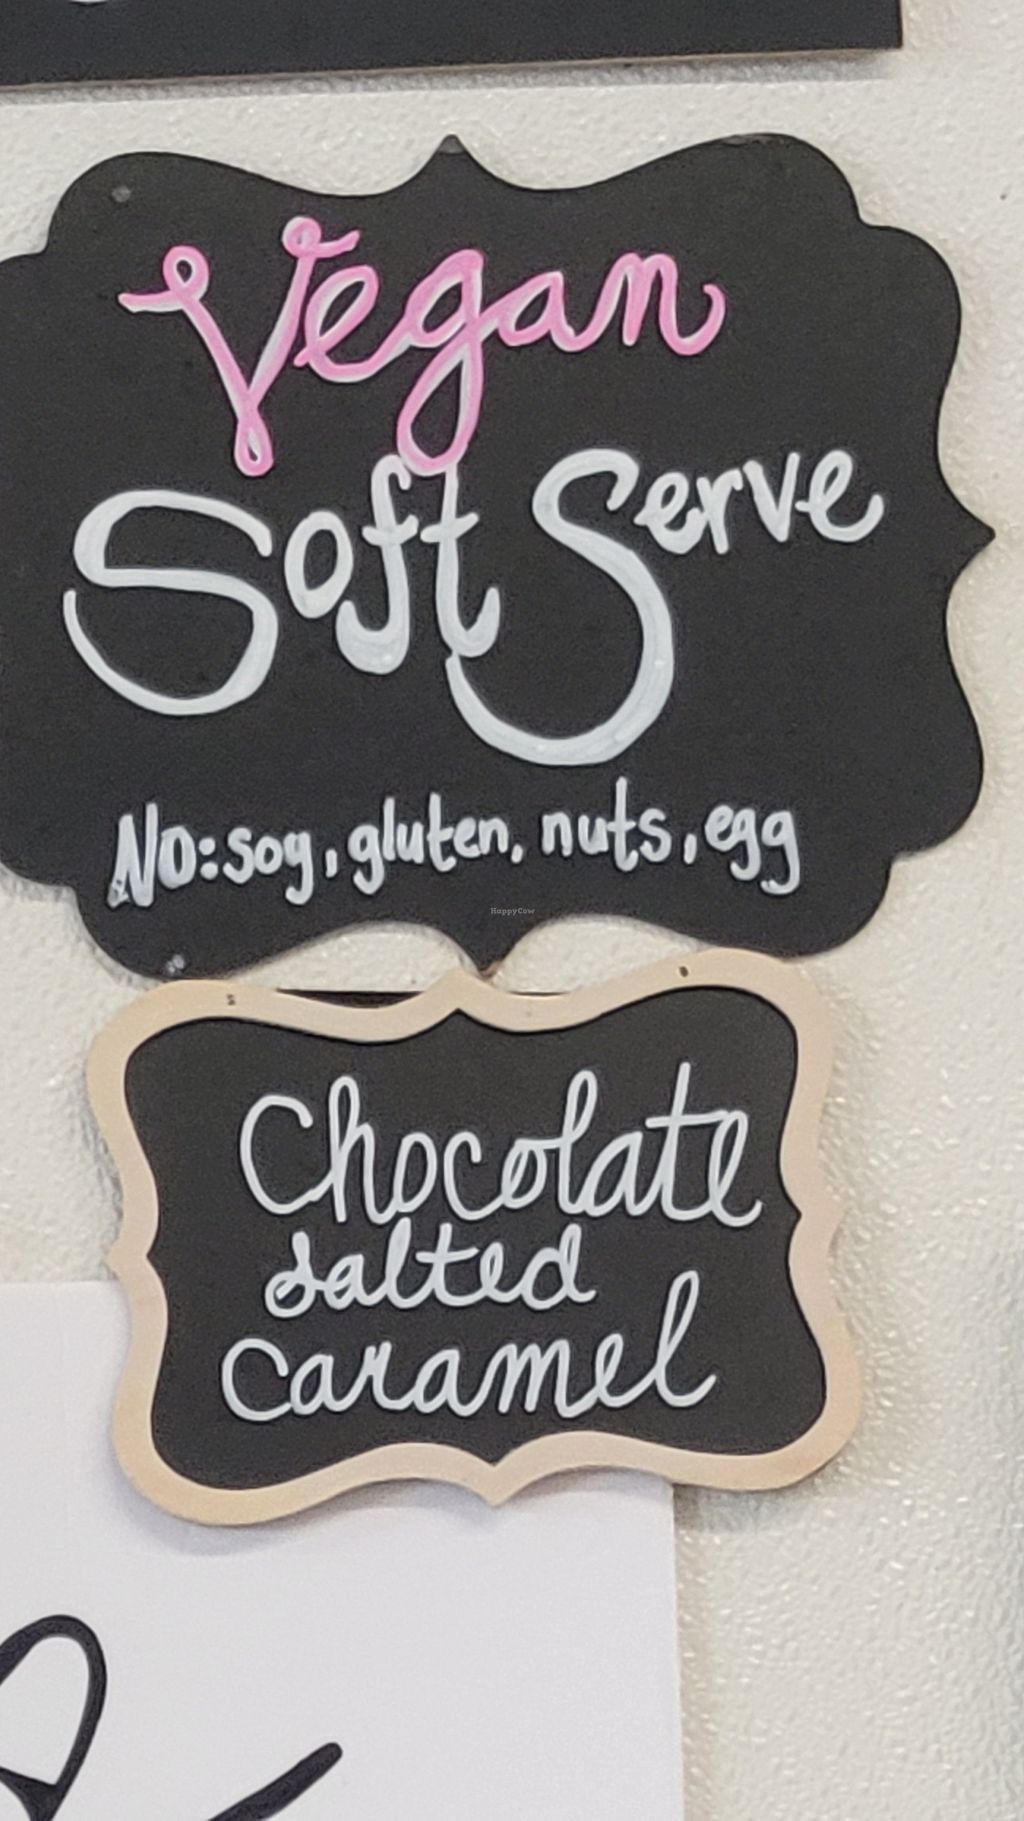 Vegan
Soft Serve
No: soy, gluten, nuts, egg
HappyCow
Chocolate
salted
caramel